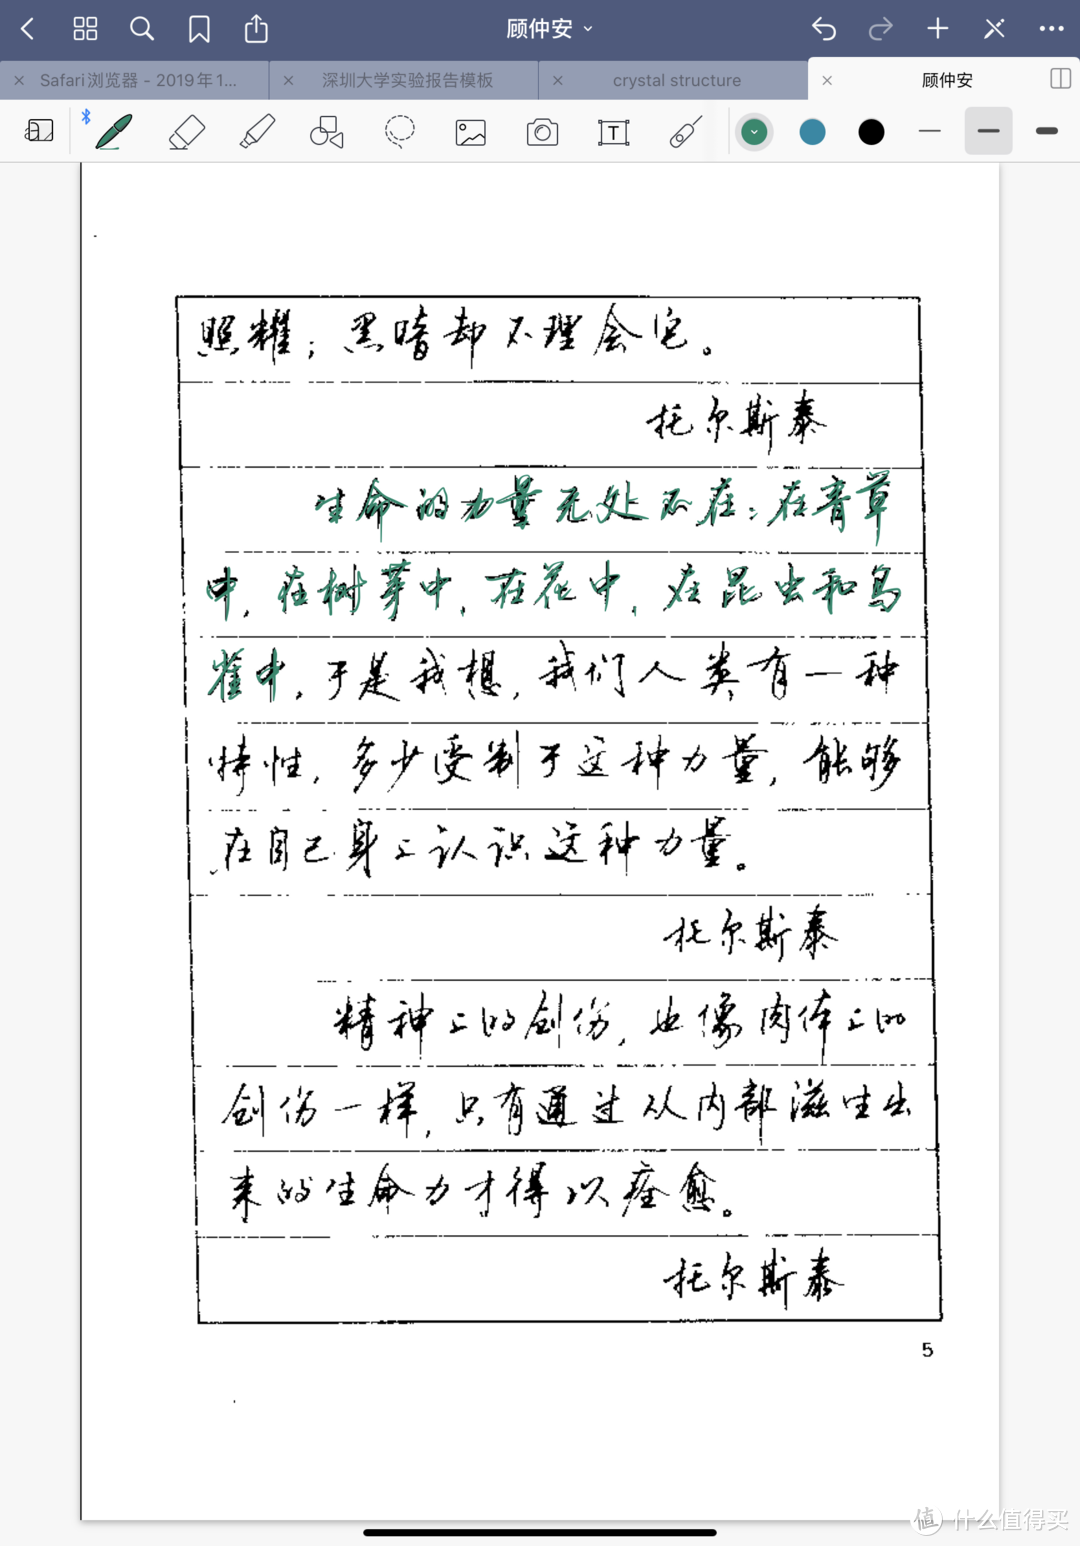 顾仲安
Safari浏览器 - 2019年1...
深圳大学实验报告模板
crystal structure
顾仲安
照耀；黑暗却不理会它。
托尔斯泰
生命的力量无处不在：在青草
中，在树芽中，在花中，在昆虫和鸟
雀中，于是我想，我们人类有一种
特性，多少受制于这种力量，能够
在自己身上认识这种力量。
托尔斯泰
精神上的创伤，也像肉体上的
创伤一样，只有通过从内部滋生出
来的生命力才得以痊愈。
托尔斯泰
5
值 什么值得买